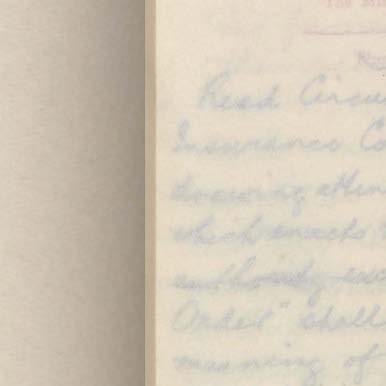 The Min
Read Circu
Insurance Co
drawing atten
which enacts
authority exc
Order" shall
meaning of